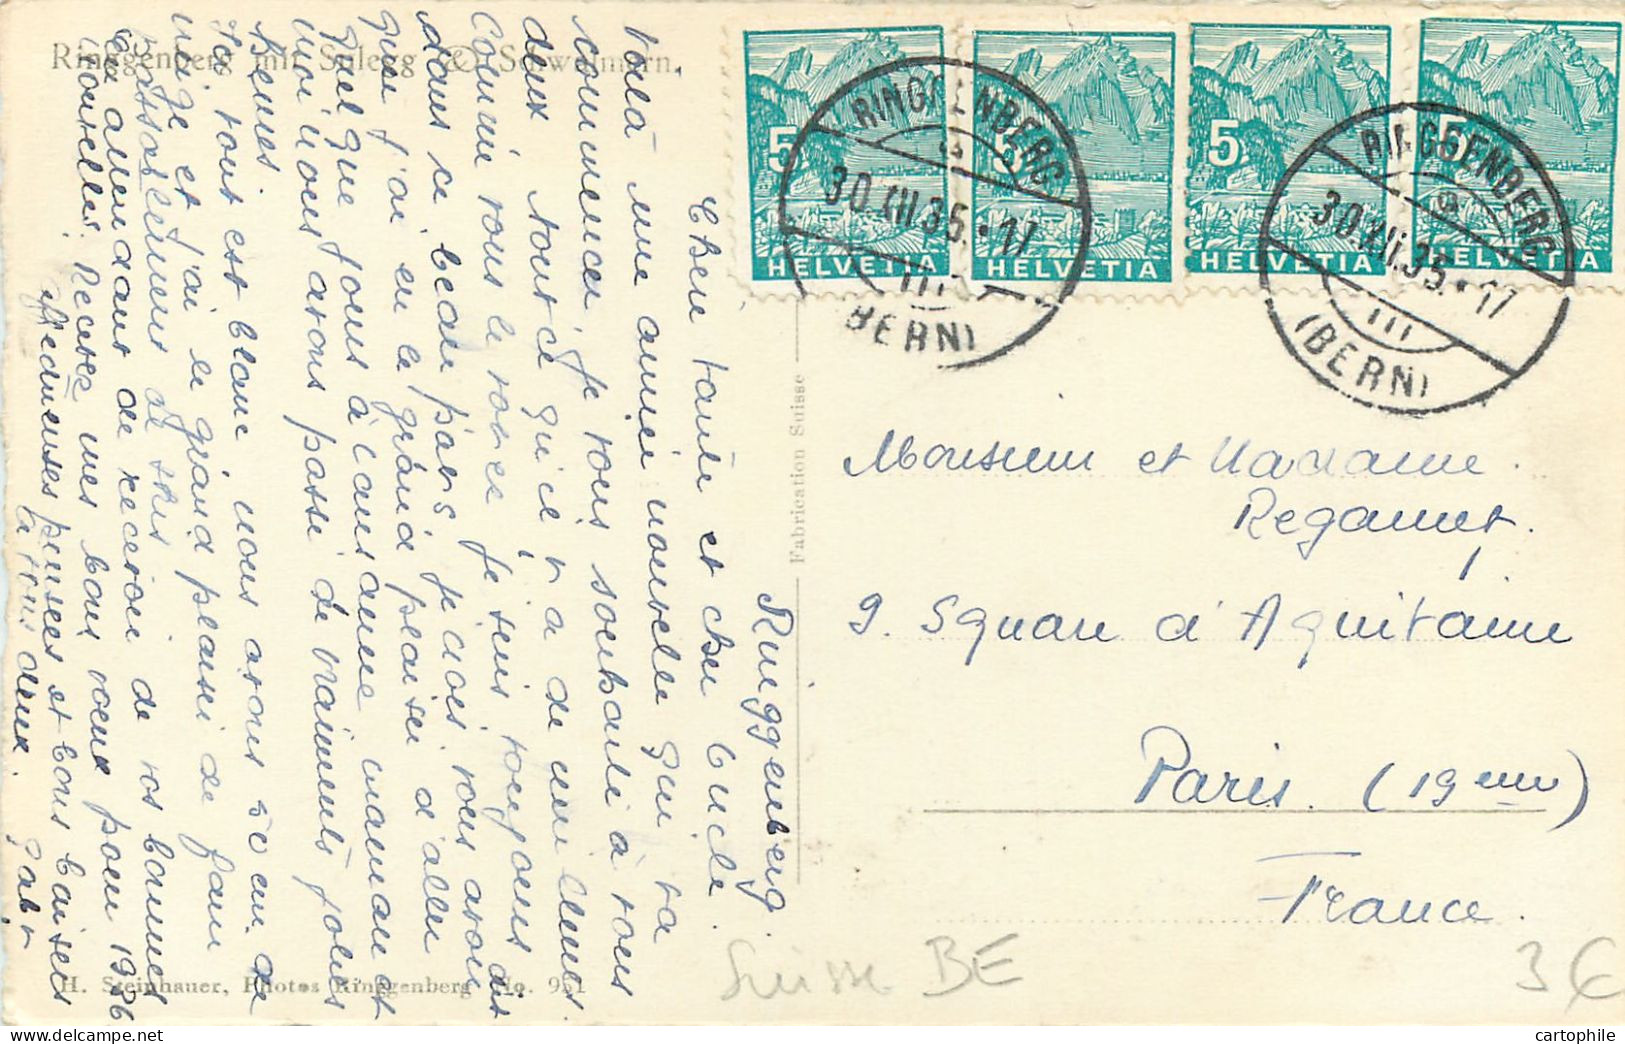 Ringgenberg mit Suleng & Schwalmern.
Ringgenberg.
Chère tante et cher Lucle.
Voilà une année nouvelle qui va
commencer, je vous souhaite à vous
deux tout ce qu'il y a de meilleur.
Comme vous le voyez je suis toujours
dans ce beau pays, je dois vous dire
que j'ai eu le grand plaisir d'aller
quelque jours à Lausanne maman et
moi nous avons passé de vraiments jolies
heures.
Ici tout est blanc nous avons 20 cm de
neige et j'ai le grand plaisir de faire
passablement de skis
en attendant de recevoir de vos bonnes
nouvelles. Recevez mes bons voeux pour 1936
affectueuses pensées et bons baisers
à vous deux.
Gaby
H. Steinhauer, Photos Ringgenberg No. 951
Fabrication Suisse
5 HELVETIA
5 HELVETIA
5 HELVETIA
5 HELVETIA
RINGGENBERG
30.XII.35.17
III
(BERN)
RINGGENBERG
30.XII.35.17
III
(BERN)
Monsieur et Madame.
Regamey.
9. Square d'Aquitaine
Paris. (19ème)
France.
Suisse BE
3€
cartophile